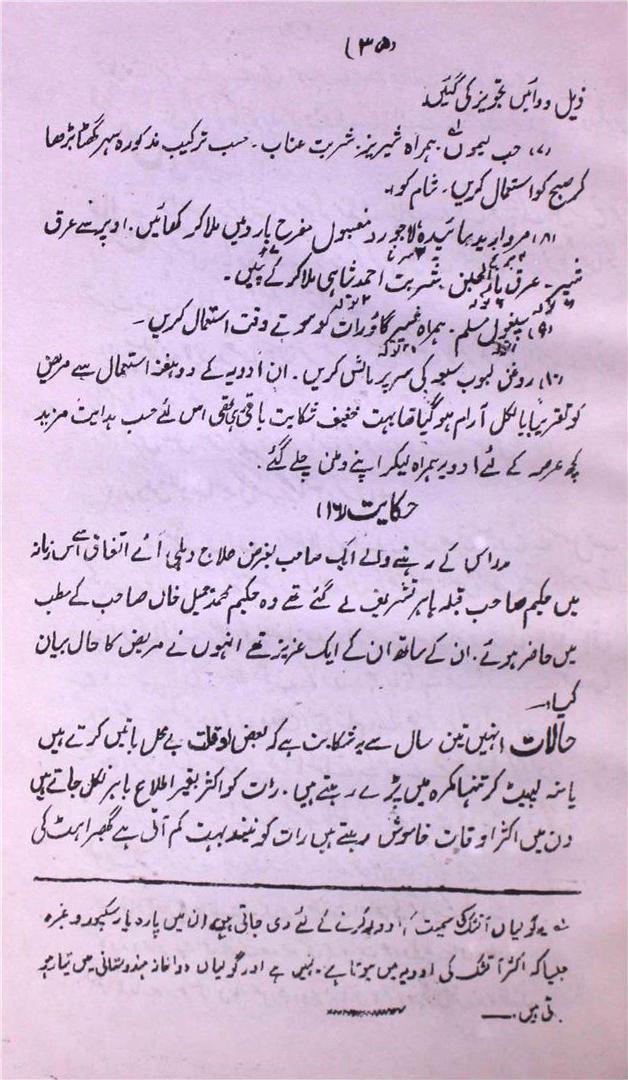 (۳۵)
ذیل دوائیں تجویز کی گئیں
(۷) حب لیموں ہمراہ شیر بز۔ شربت عناب۔ حسب ترکیب مذکورہ سہر گھٹا بڑھا
کر صبح کو استعمال کریں۔ شام کو:۔
(۸) مروارید سائیدہ لاجورد مغسول مفرح بارد میں ملا کر کھائیں۔ اوپر سے عرق
شیر۔ عرق شربت احمد شاہی ملا کر پئیں۔
(۹) اسپغول مسلم۔ ہمراہ خمیرہ گاؤزبان رات کو سوتے وقت استعمال کریں۔
(۱۰) روغن لبوب سبعہ کی سر پر مالش کریں۔ ان ادویہ کے دو ہفتہ استعمال سے مریض
کو تقریباً بالکل آرام ہو گیا تھا بہت خفیف شکایت باقی رہی تھی اس لئے حسب ہدایت مزید
کچھ عرصہ کے لئے ادویہ ہمراہ لیکر اپنے وطن چلے گئے۔
حکایت (۱۶)
مدراس کے رہنے والے ایک صاحب بغرض علاج دہلی آئے اتفاق سے اس زمانہ
میں حکیم صاحب قبلہ باہر تشریف لے گئے تھے وہ حکیم محمد جمیل خاں صاحب کے مطب
میں حاضر ہوئے۔ ان کے ساتھ ان کے ایک عزیز تھے انہوں نے مریض کا حال بیان
کیا:۔
حالات انہیں تین سال سے یہ شکایت ہے کہ بعض اوقات بے محل باتیں کرتے ہیں
یا منہ لپیٹ کر تنہا کمرہ میں پڑے رہتے ہیں۔ رات کو اکثر بغیر اطلاع باہر نکل جاتے ہیں
دن میں اکثر اوقات خاموش رہتے ہیں رات کو نیند بہت کم آتی ہے گھبراہٹ کی
یہ گولیاں آتشک کی سمیت کو دور کرنے کے لئے دی جاتی ہیں ان میں پارہ یا رسکپور وغیرہ
جیسا کہ اکثر آتشک کی ادویہ میں ہوتا ہے۔ نہیں ہے اور گولیاں دواخانہ ہندوستانی میں تیار ہو
تی ہیں۔